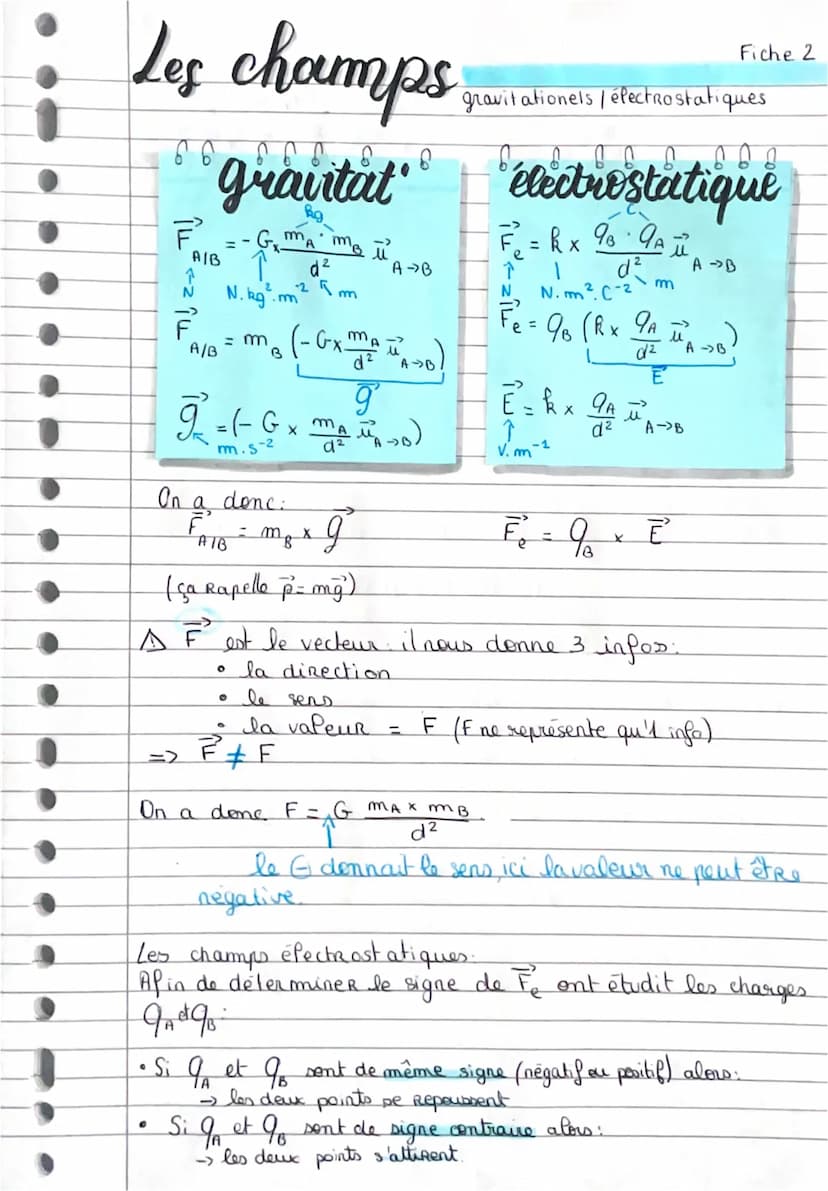 Les champs
Fiche 2
gravitationels / électrostatiques
gravitat°
kg
F⃗ A/B = - G x mA · mB / d² u⃗ A→B
N N.kg².m⁻² m
F⃗ A/B = mB (- G x mA / d² u⃗ A→B)
g⃗
g⃗ = (- G x mA / d² u⃗ A→B)
m.s⁻²
électrostatique
C
F⃗e = k x qB · qA / d² u⃗ A→B
N N.m².C⁻² m
F⃗e = qB (k x qA / d² u⃗ A→B)
E⃗
E⃗ = k x qA / d² u⃗ A→B
V.m⁻¹
On a donc:
F⃗ A/B = mB x g⃗
F⃗e = qB x E⃗
(ça Rapelle p⃗ = mg⃗)
⚠ F⃗ est le vecteur: il nous donne 3 infos:
• la direction
• le sens
• la valeur = F (F ne représente qu'1 info)
=> F⃗ ≠ F
On a donc F = G mA x mB / d²
le ⊖ donnait le sens, ici la valeur ne peut être
négative.
Les champs électrostatiques:
Afin de déterminer le signe de F⃗e ont étudit les charges
qA et qB:
• Si qA et qB sont de même signe (négatif ou positif) alors:
→ les deux points se repoussent
• Si qA et qB sont de signe contraire alors:
→ les deux points s'attirent.